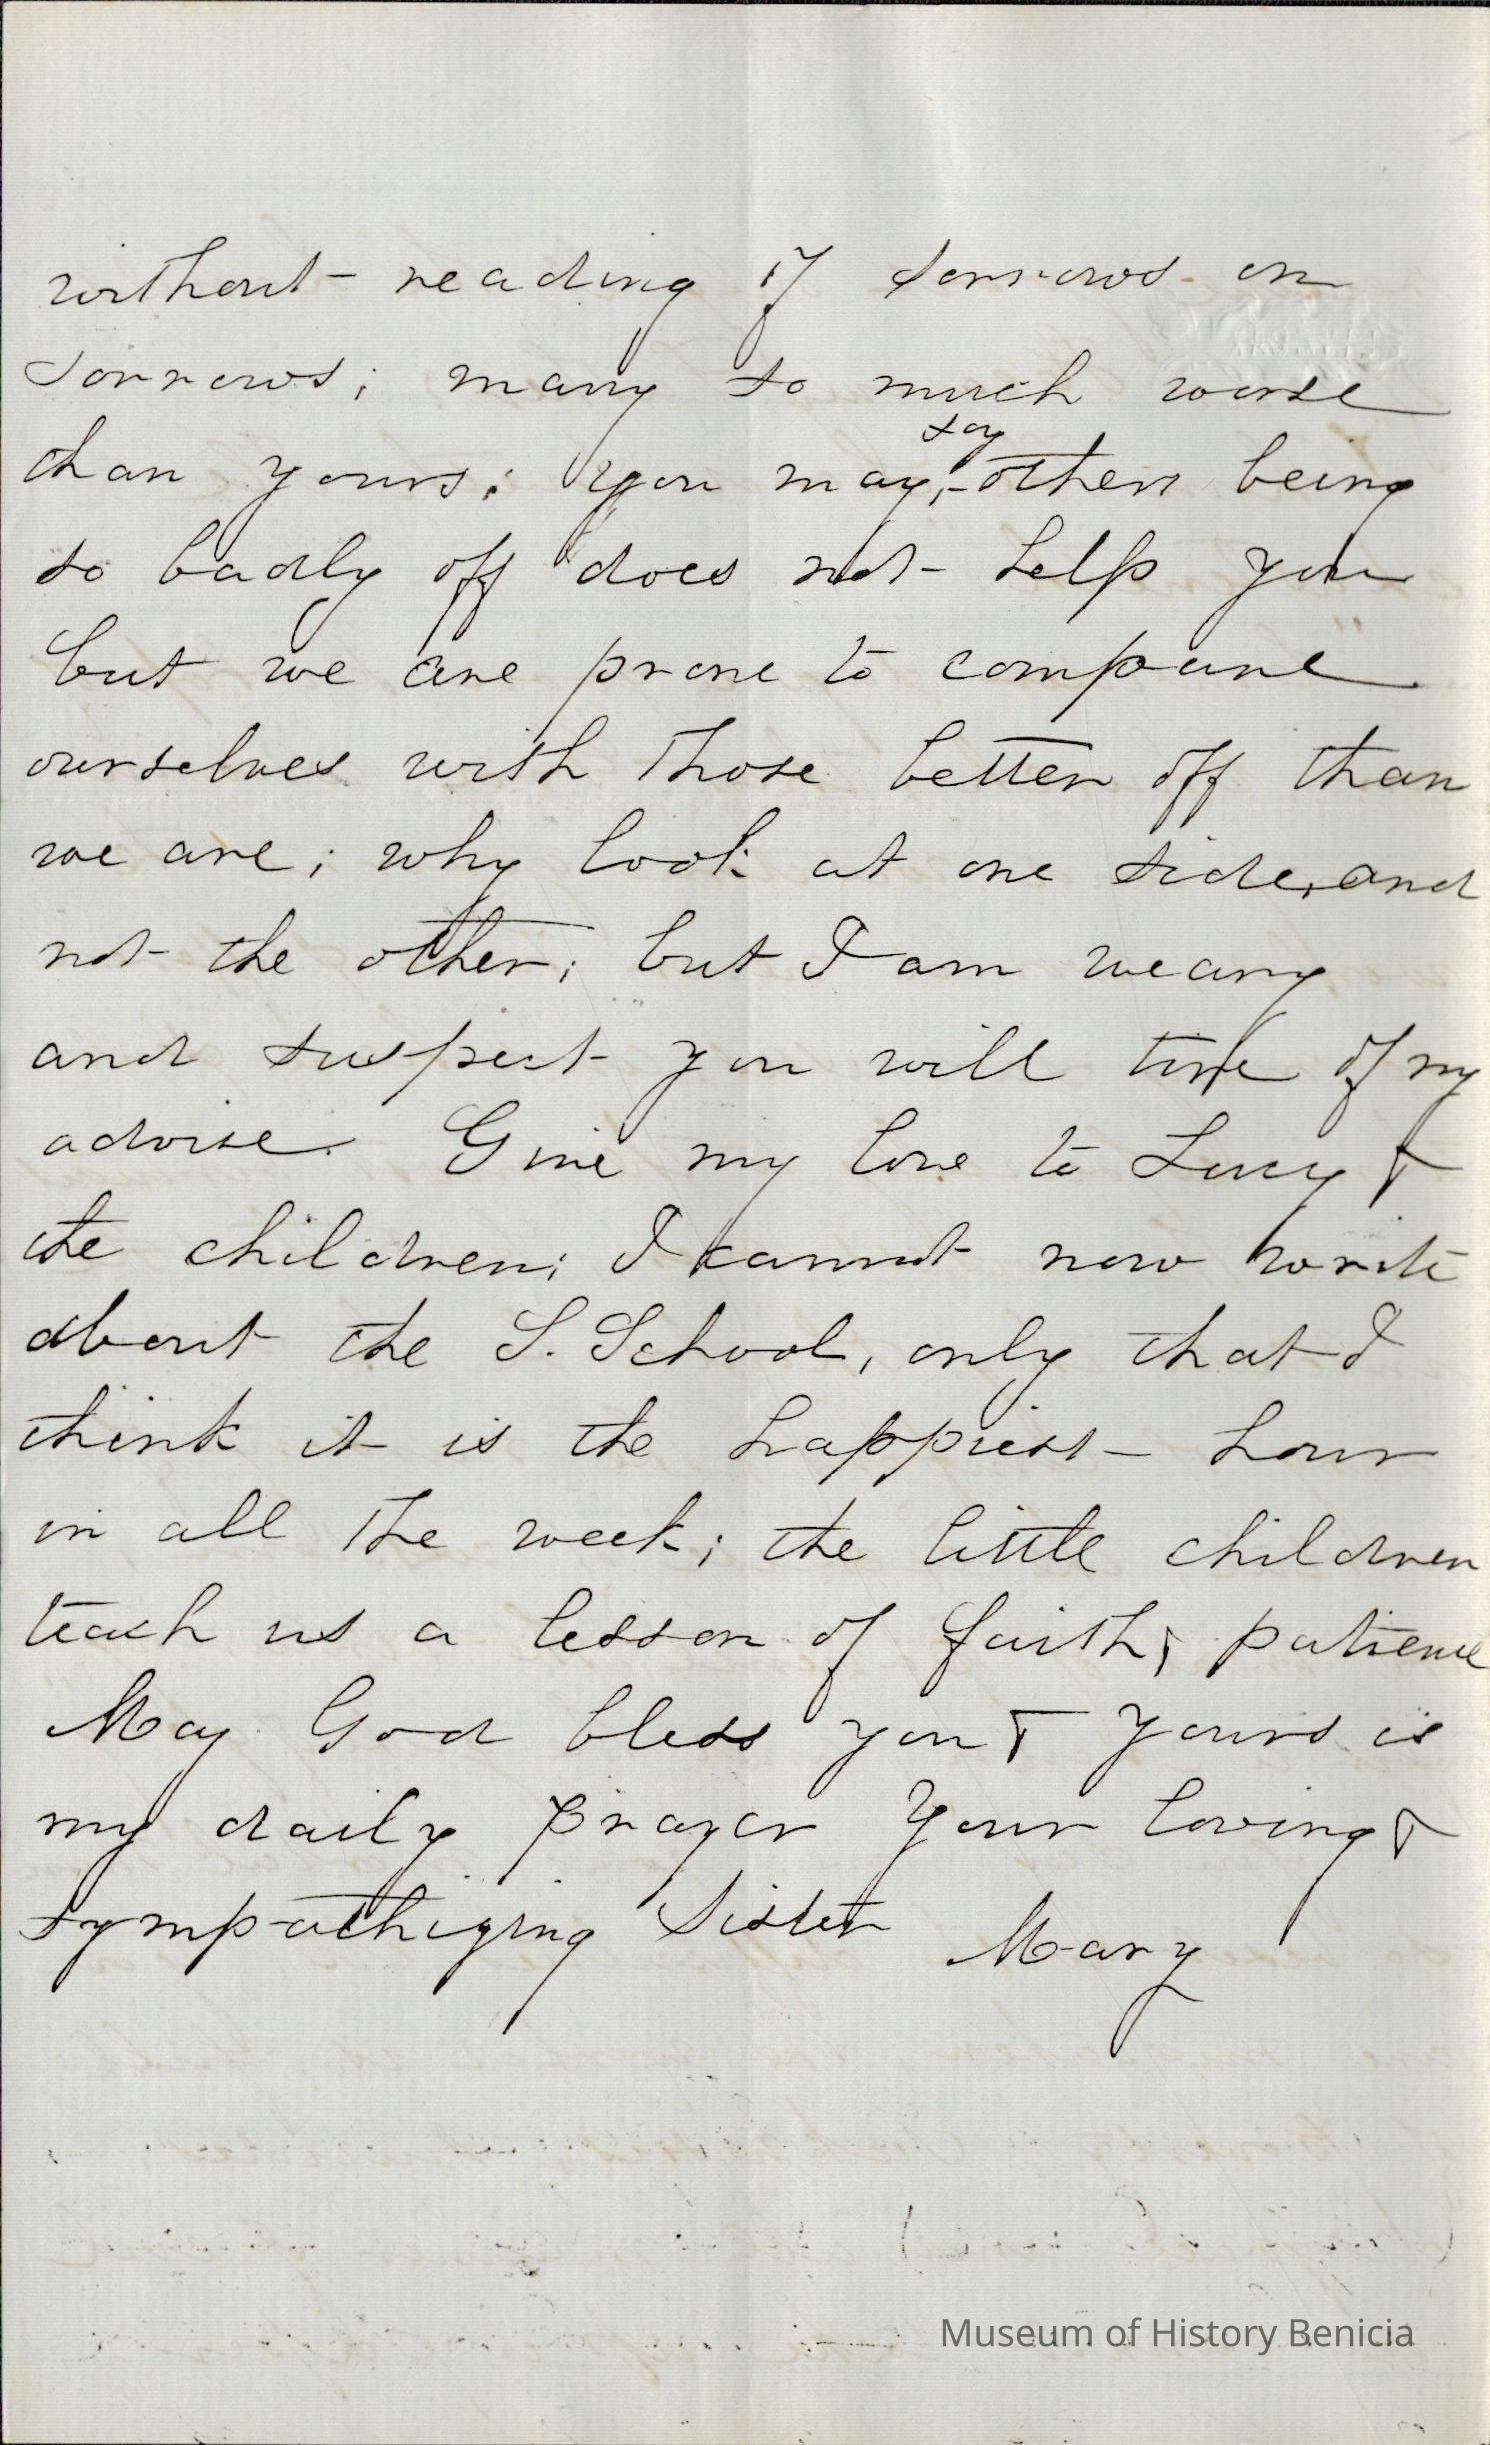 without reading of sorrows on
sorrows; many so much worse
than yours; you may, say others being
so badly off does not help you
but we are prone to compare
ourselves with those better off than
we are; why look at one side, and
not the other; but I am weary
and suspect you will tire of my
advise. Give my love to Lucy &
the children; I cannot now write
about the S. School, only that I
think it is the happiest hour
in all the week; the little children
teach us a lesson of faith & patience
May God bless you & yours is
my daily prayer Your loving &
sympathizing Sister Mary
Museum of History Benicia